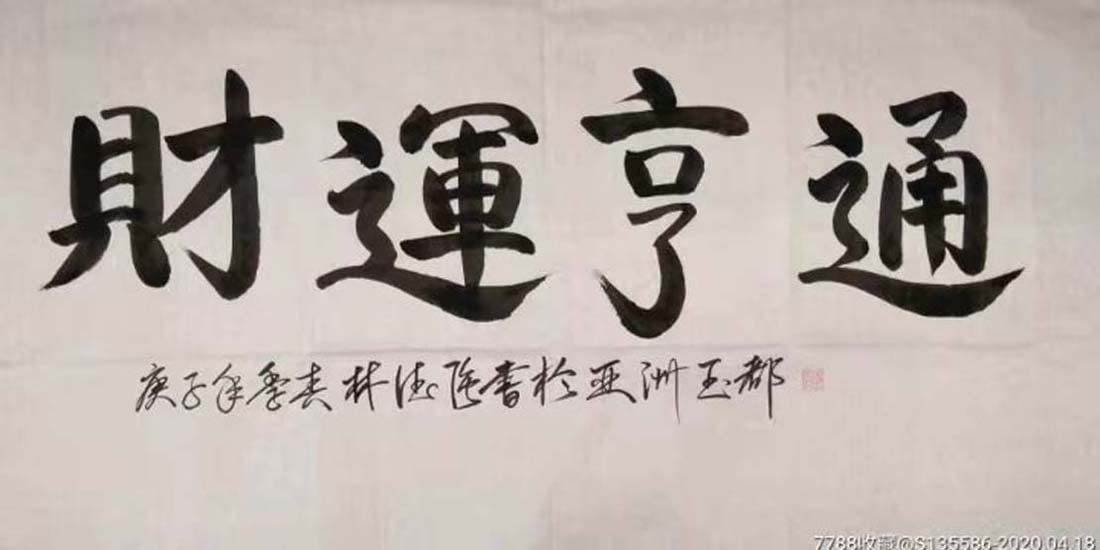 財運亨通
庚子年季春林德隆書於亚洲玉都
7788收藏@S135586-2020.04.18